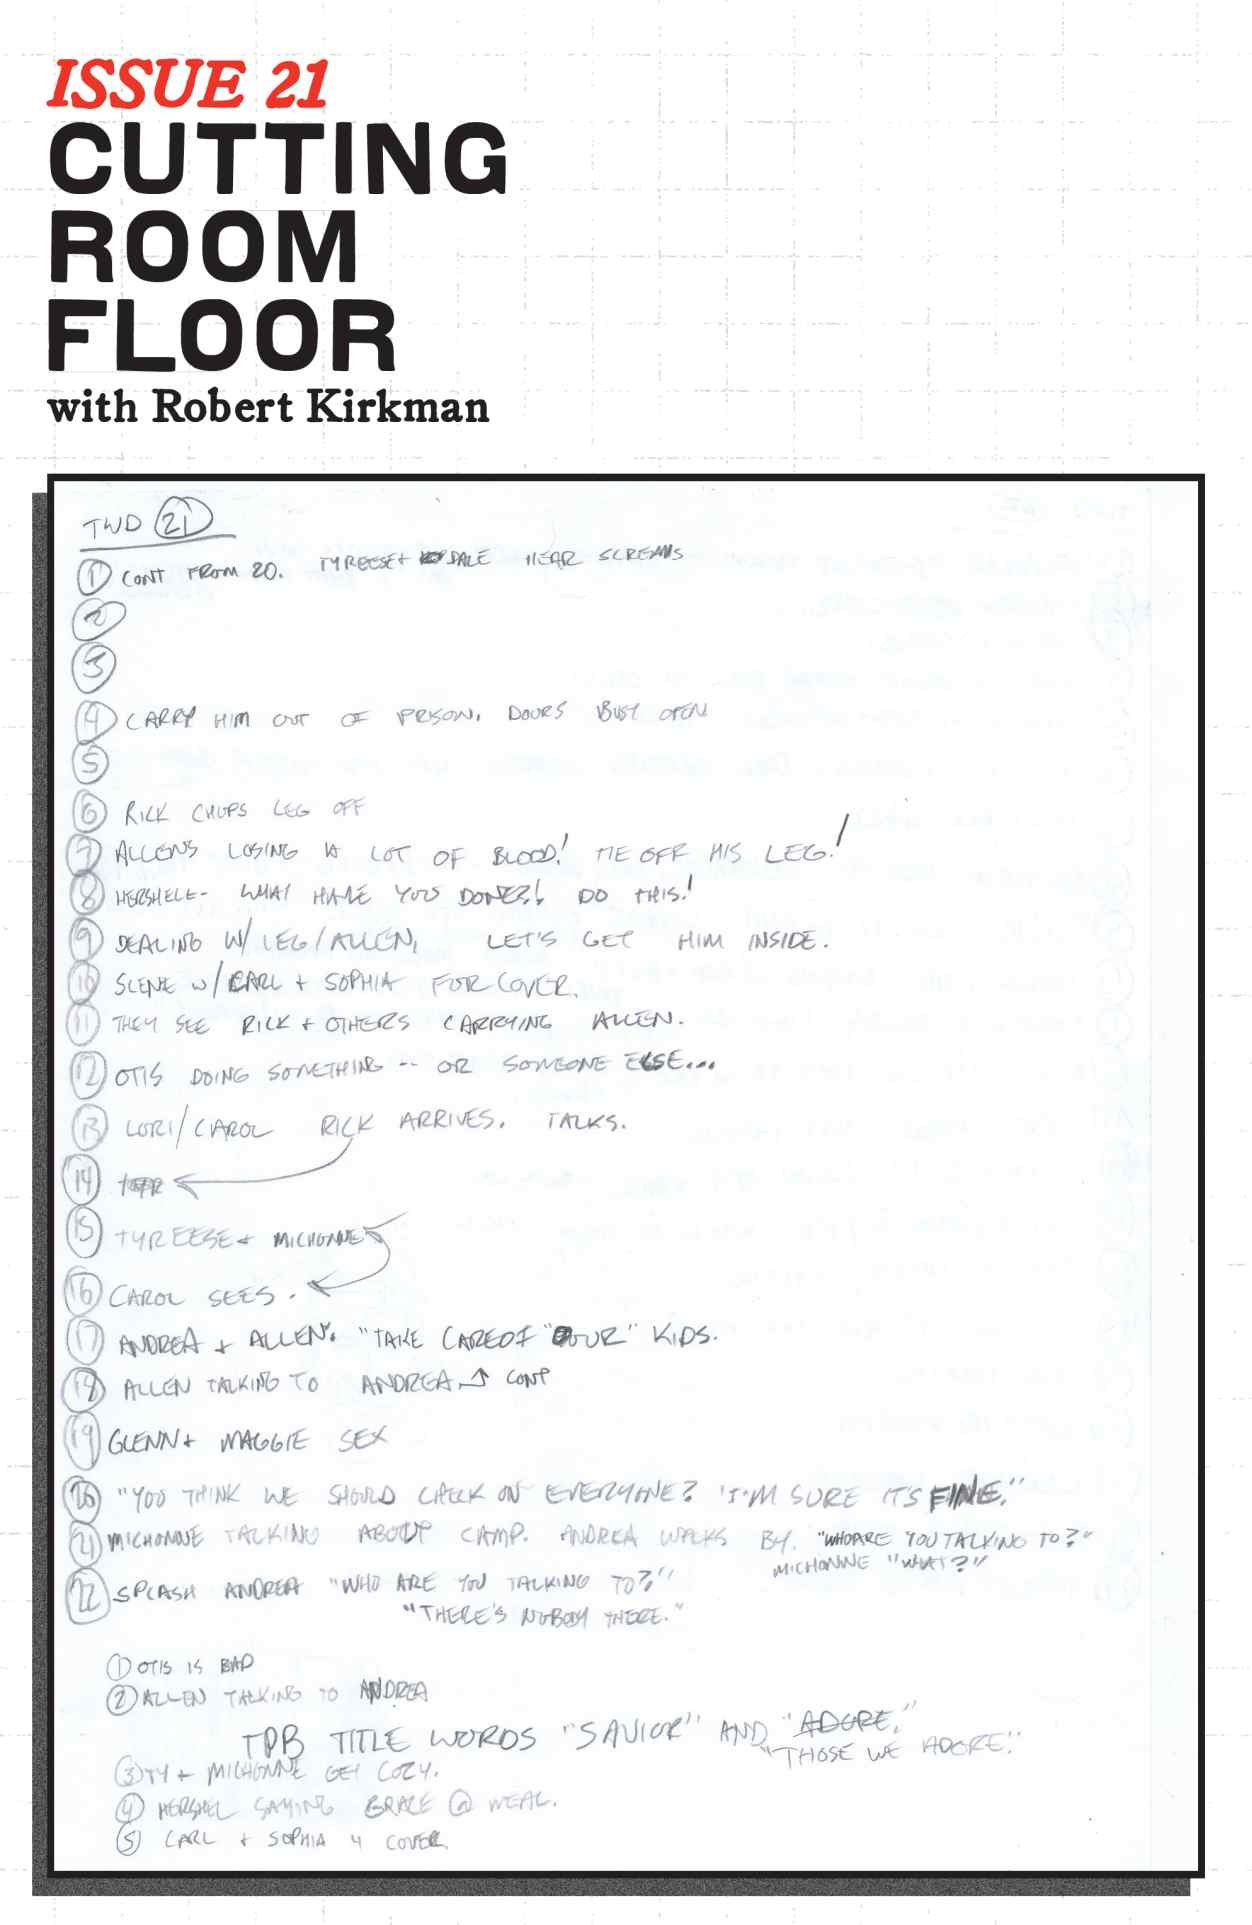 ISSUE 21
CUTTING
ROOM
FLOOR
with Robert Kirkman
TWD 21
1 CONT FROM 20. TYREESE + DALE HEAR SCREAMS
2
3
4 CARRY HIM OUT OF PRISON. DOORS BUST OPEN
5
6 RICK CHOPS LEG OFF
7 ALLEN'S LOSING A LOT OF BLOOD! TIE OFF HIS LEG!
8 HERSHELL- WHAT HAVE YOU DONE?! DO THIS!
9 DEALING W/ LEG/ALLEN, LET'S GET HIM INSIDE.
10 SCENE W/ CARL + SOPHIA FOR COVER.
11 THEY SEE RICK + OTHERS CARRYING ALLEN.
12 OTIS DOING SOMETHING -- OR SOMEONE ELSE...
13 LORI/CAROL RICK ARRIVES. TALKS.
14
15 TYREESE + MICHONNE
16 CAROL SEES.
17 ANDREA + ALLEN. "TAKE CARE OF "OUR" KIDS.
18 ALLEN TALKING TO ANDREA CONT
19 GLENN + MAGGIE SEX
20 "YOU THINK WE SHOULD CHECK ON EVERYONE? 'I'M SURE ITS FINE."
21 MICHONNE TALKING ABOUT CAMP. ANDREA WALKS BY. "WHO ARE YOU TALKING TO?"
MICHONNE "WHAT?"
22 SPLASH ANDREA "WHO ARE YOU TALKING TO?"
"THERE'S NOBODY THERE."
1 OTIS IS BAD
2 ALLEN TALKING TO ANDREA
TPB TITLE WORDS "SAVIOR" AND "ADORE."
"THOSE WE ADORE."
3 TY + MICHONNE GET COZY.
4 HERSHEL SAYING GRACE @ MEAL.
5 CARL + SOPHIA 4 COVER.